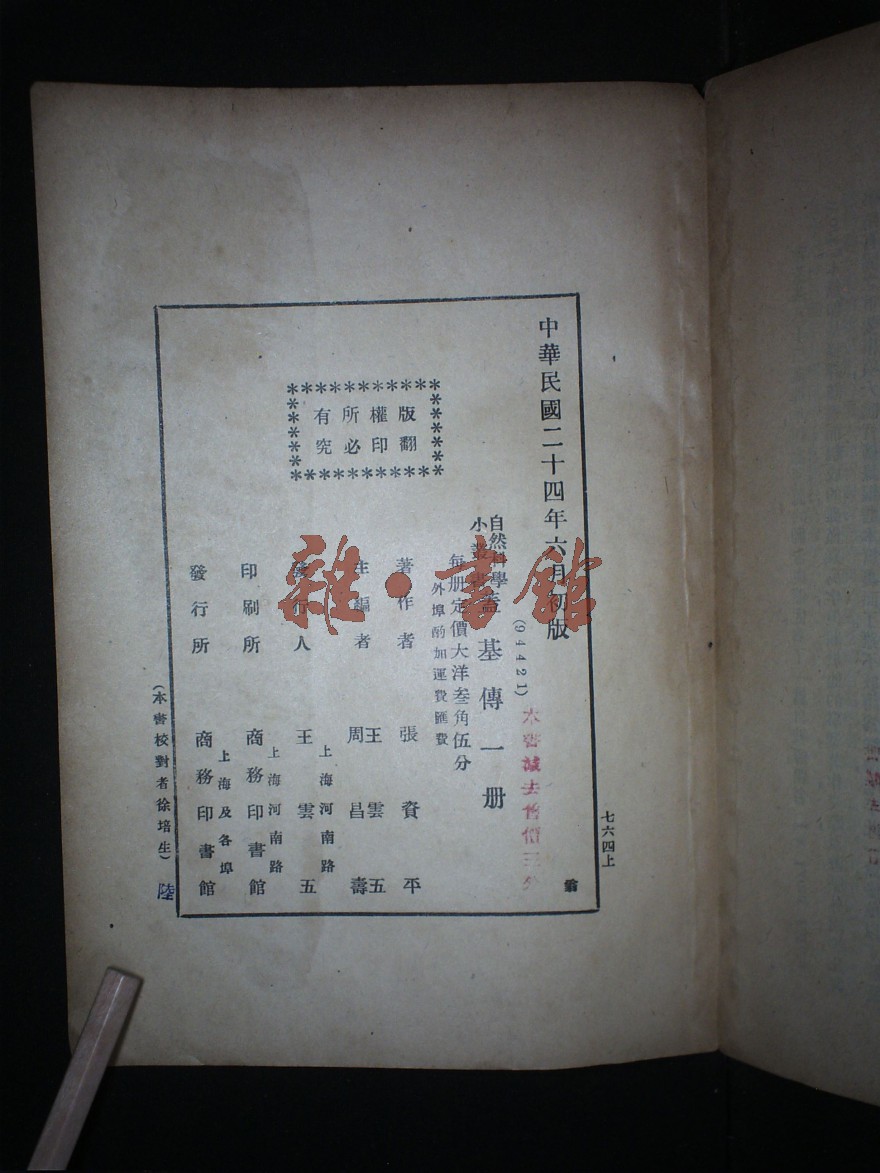 七六四上
中華民國二十四年六月初版
(94421)
自然科學
小叢書
蓋基傳一册
每册定價大洋叁角伍分
外埠酌加運費匯費
本書減去舊價三分
版權所有
翻印必究
著作者 張資平
主編者 王雲五
周昌壽
發行人 王雲五
上海河南路
印刷所 商務印書館
上海河南路
發行所 商務印書館
上海及各埠
(本書校對者徐培生)
陸
雜·書館